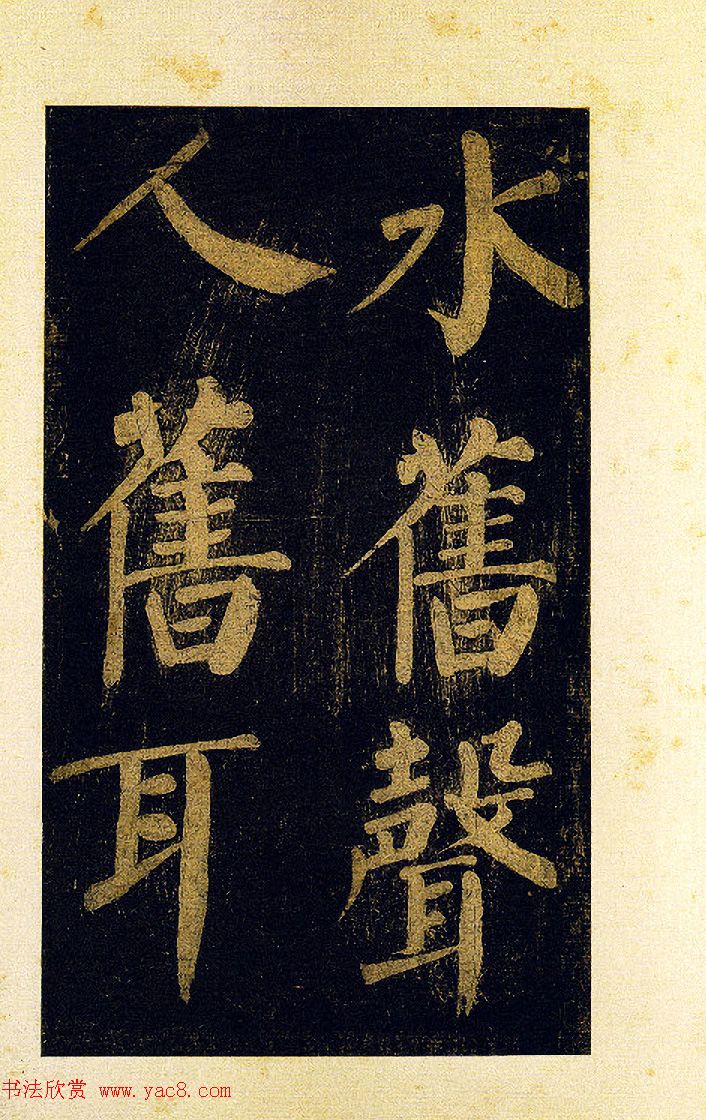 水舊聲
人舊耳
书法欣赏 www.yac8.com